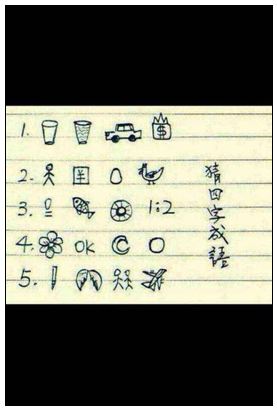 1. $
2.
3. 1:2
4. OK C O
5.
猜四字成語